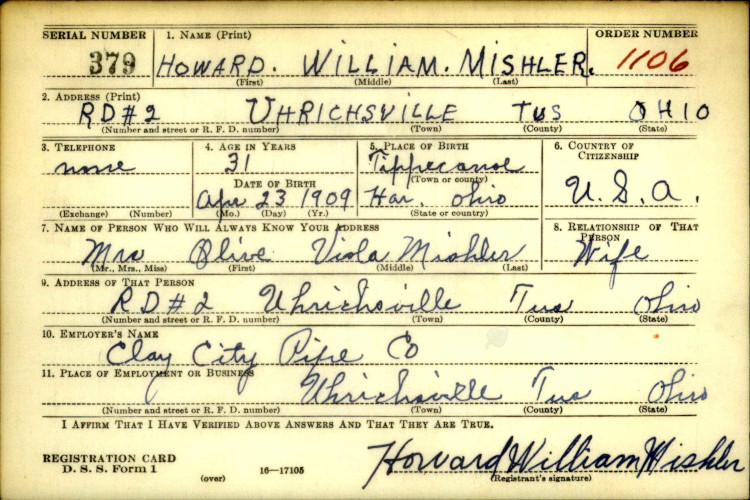 SERIAL NUMBER 1. NAME (Print) ORDER NUMBER
379 HOWARD. WILLIAM. MISHLER. 1106
(First) (Middle) (Last)
2. ADDRESS (Print)
RD#2 UHRICHSVILLE TUS OHIO
(Number and street or R. F. D. number) (Town) (County) (State)
3. TELEPHONE 4. AGE IN YEARS 5. PLACE OF BIRTH 6. COUNTRY OF CITIZENSHIP
none 31 Tippecanoe
(Town or county)
DATE OF BIRTH
Apr 23 1909 Har. Ohio U.S.A.
(Exchange) (Number) (Mo.) (Day) (Yr.) (State or country)
7. NAME OF PERSON WHO WILL ALWAYS KNOW YOUR ADDRESS 8. RELATIONSHIP OF THAT PERSON
Mrs Olive Viola Mishler Wife
(Mr., Mrs., Miss) (First) (Middle) (Last)
9. ADDRESS OF THAT PERSON
RD#2 Uhrichsville Tus Ohio
(Number and street or R. F. D. number) (Town) (County) (State)
10. EMPLOYER'S NAME
Clay City Pipe Co
11. PLACE OF EMPLOYMENT OR BUSINESS
Uhrichsville Tus Ohio
(Number and street or R. F. D. number) (Town) (County) (State)
I AFFIRM THAT I HAVE VERIFIED ABOVE ANSWERS AND THAT THEY ARE TRUE.
REGISTRATION CARD Howard William Mishler
D. S. S. Form 1 (over) 16—17105 (Registrant's signature)